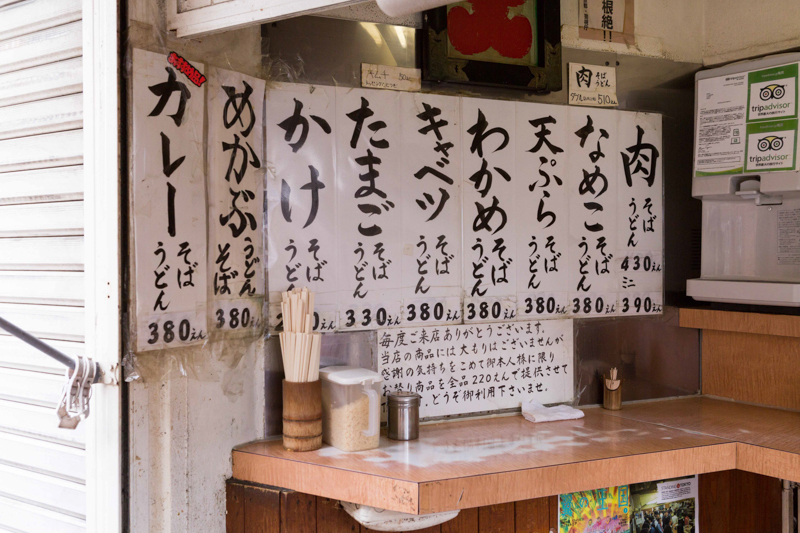 根絶!!
肉 そば うどん
ダブル 510えん
肉 そば うどん 430えん ミニ 390えん
なめこ そば うどん 380えん
天ぷら そば うどん 380えん
わかめ そば うどん 380えん
キャベツ そば うどん 380えん
たまご そば うどん 330えん
かけ そば うどん
めかぶ うどん そば 380えん
カレー そば うどん 380えん
毎度ご来店ありがとうございます。
当店の商品には大もりはございませんが
感謝の気持ちをこめて御本人様に限り
お祭り商品を全品220えんで提供させて
どうぞ御利用下さいませ。
tripadvisor
tripadvisor